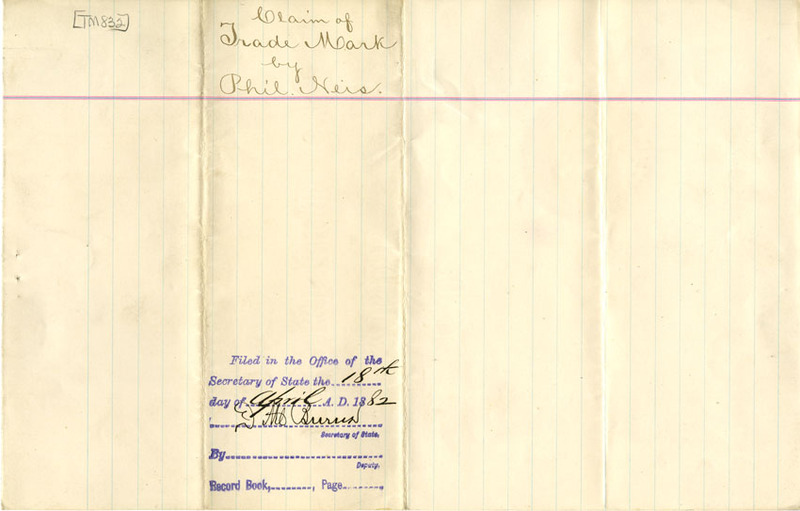 [TM832]
Claim of
Trade Mark
by
Phil. Neis.
Filed in the Office of the
Secretary of State the 18th
day of April A. D. 1882
Burns
Secretary of State.
By
Deputy.
Record Book, , Page